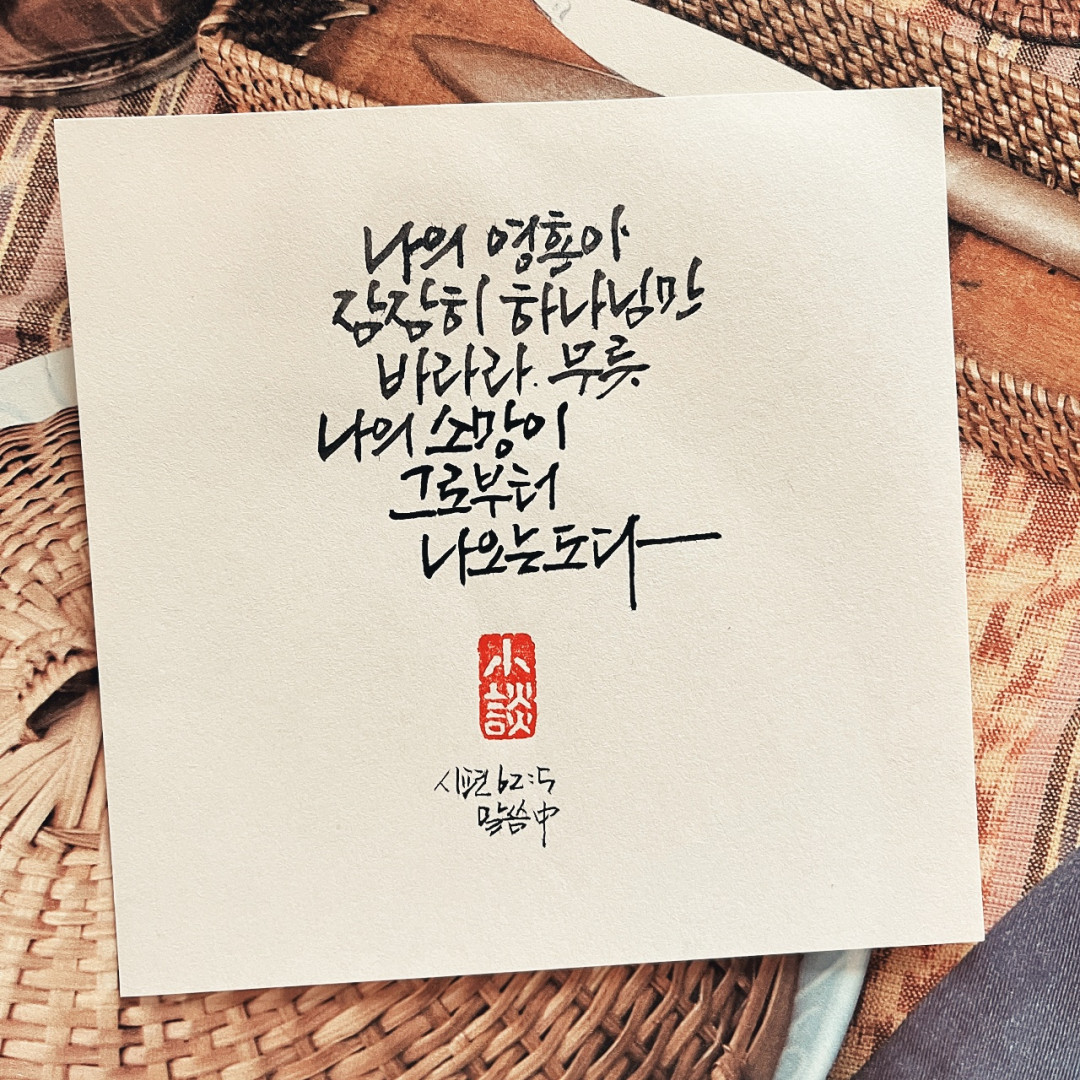 나의 영혼아
잠잠히 하나님만
바라라. 무릇
나의 소망이
그로부터
나오는도다
小談
시편 62:5
말씀中